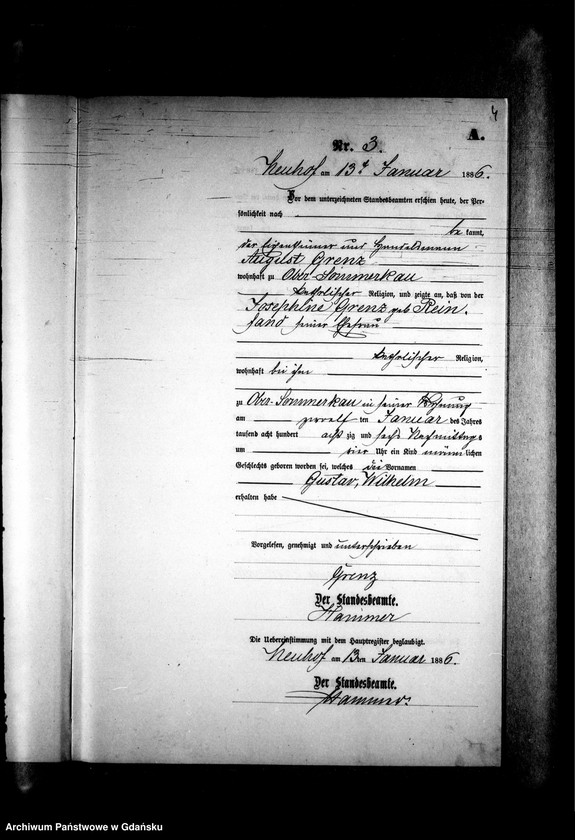 4
A.
Nr. 3.
Neuhof am 13t Januar 1886.
Vor dem unterzeichneten Standesbeamten erschien heute, der Per-
sönlichkeit nach
be kannt,
der Eigenthümer und Handelsmann
August Grenz
wohnhaft zu Ober Sommerkau
katholischer Religion, und zeigte an, daß von der
Josephine Grenz geb Rein,
land seiner Ehefrau
katholischer Religion,
wohnhaft bei ihm
zu Ober-Sommerkau in seiner Wohnung
am zwoelf ten Januar des Jahres
tausend acht hundert acht zig und sechs Nachmittags
um vier Uhr ein Kind männ lichen
Geschlechts geboren worden sei, welches die Vornamen
Gustav, Wilhelm
erhalten habe
Vorgelesen, genehmigt und unterschrieben
Grenz
Der Standesbeamte.
Hammer
Die Uebereinstimmung mit dem Hauptregister beglaubigt.
Neuhof am 13ten Januar 1886.
Der Standesbeamte.
Hammer
Archiwum Państwowe w Gdańsku